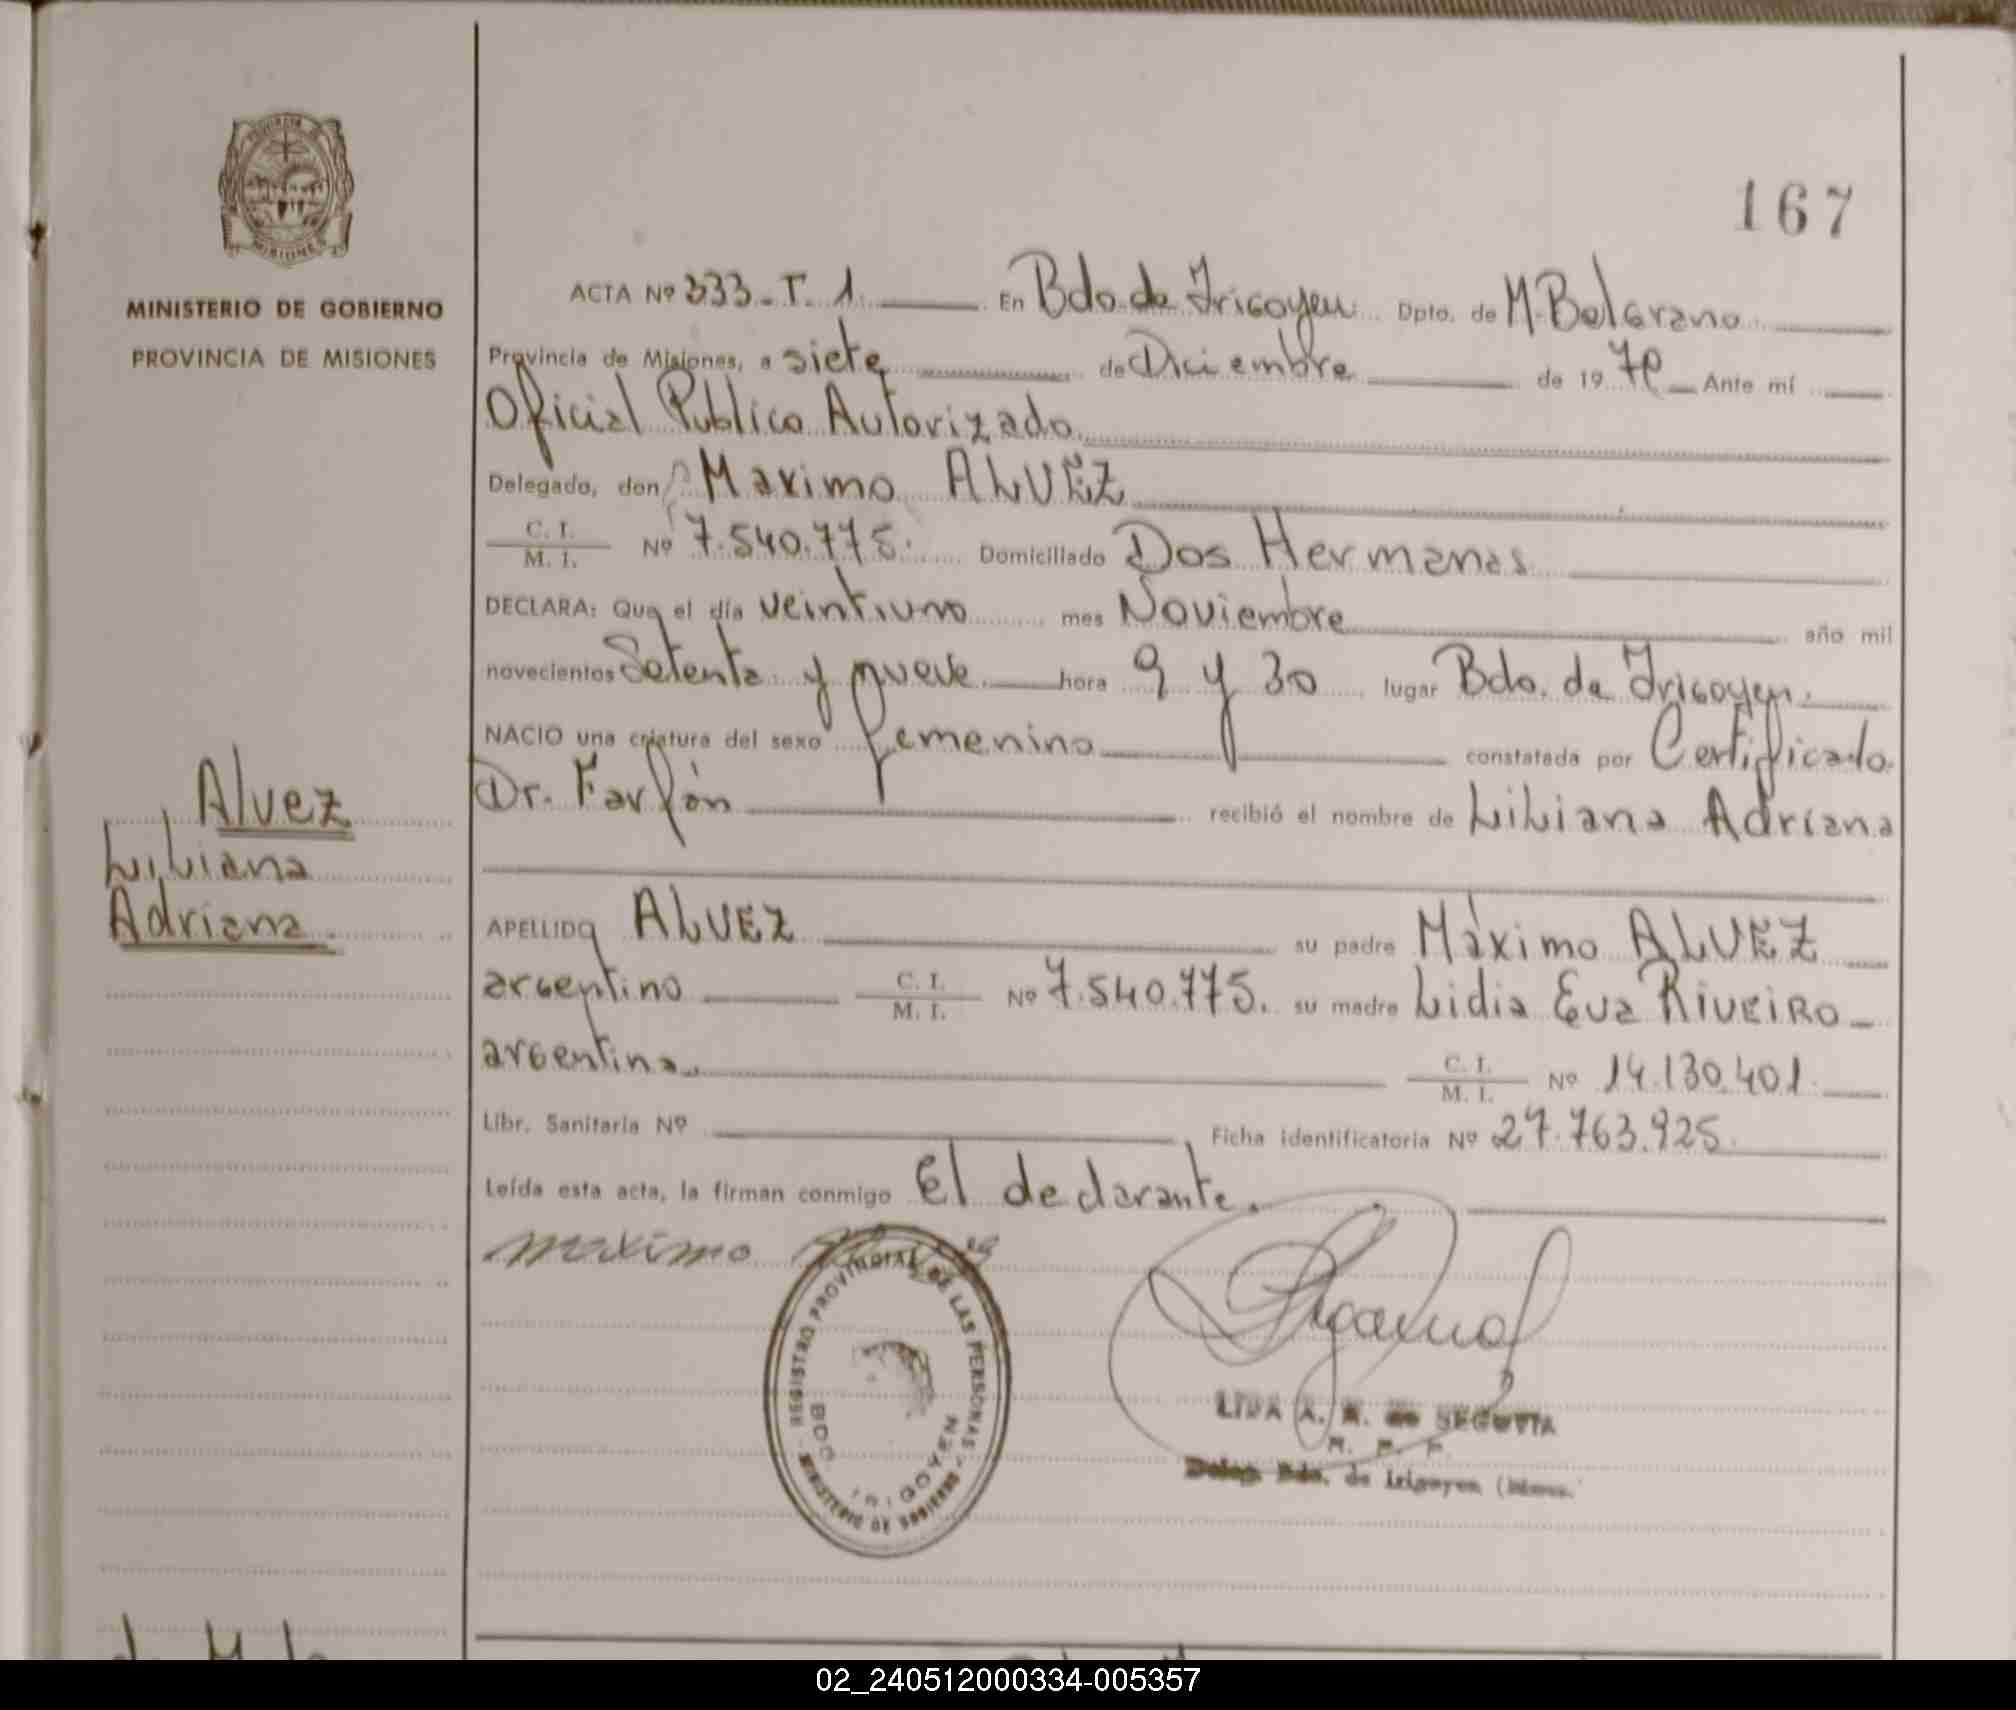 167
MINISTERIO DE GOBIERNO
PROVINCIA DE MISIONES
ACTA Nº 333-T. 1. En Bdo. de Irigoyen. Dpto. de M. Belgrano.
Provincia de Misiones, a siete de Diciembre de 19 79 Ante mí
Oficial Publico Autorizado.
Delegado, don Maximo ALVEZ
C. I.
M. I. Nº 7.540.775. Domiciliado Dos Hermanas
DECLARA: Que el día veintiuno mes Noviembre año mil
novecientos Setenta y nueve hora 9 y 30 lugar Bdo. de Irigoyen.
NACIO una criatura del sexo femenino constatada por Certificado
Dr. Farfón recibió el nombre de Liliana Adriana
Alvez
Liliana
Adriana
APELLIDO ALVEZ su padre Máximo ALVEZ
argentino C. I.
M. I. Nº 7.540.775. su madre Lidia Eva RIVEIRO
argentina. C. I.
M. I. Nº 14.130.401
Libr. Sanitaria Nº Ficha identificatoria Nº 27.763.925
Leída esta acta, la firman conmigo El declarante.
maximo
REGISTRO PROVINCIAL DE LAS PERSONAS
MINISTERIO DE GOBIERNO
BDO IRIGOYEN
LIDA A. R. de SEGOVIA
Deleg. Bdo. de Irigoyen
02_240512000334-005357